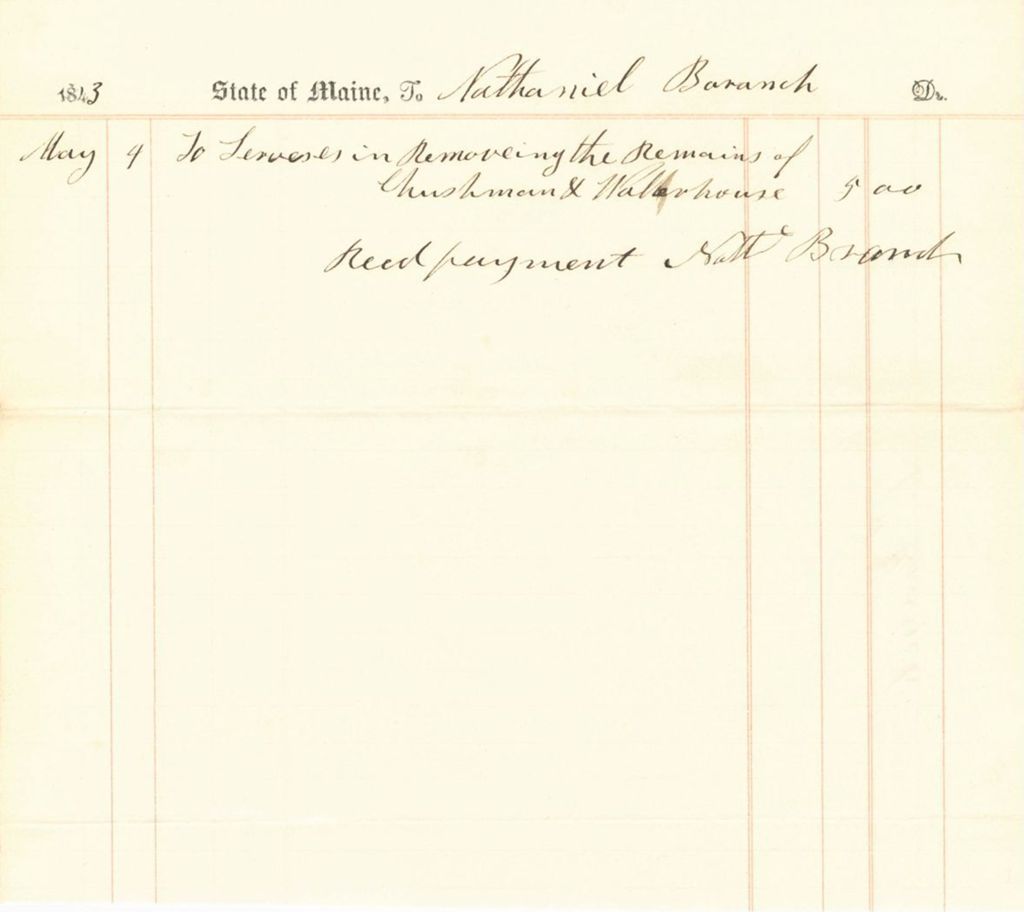 1843 State of Maine, To Nathaniel Boranch Dr.
May 4 To Serveses in Removeing the Remains of
Chushman & Waterhouse 5 00
Recd payment Natte Branch